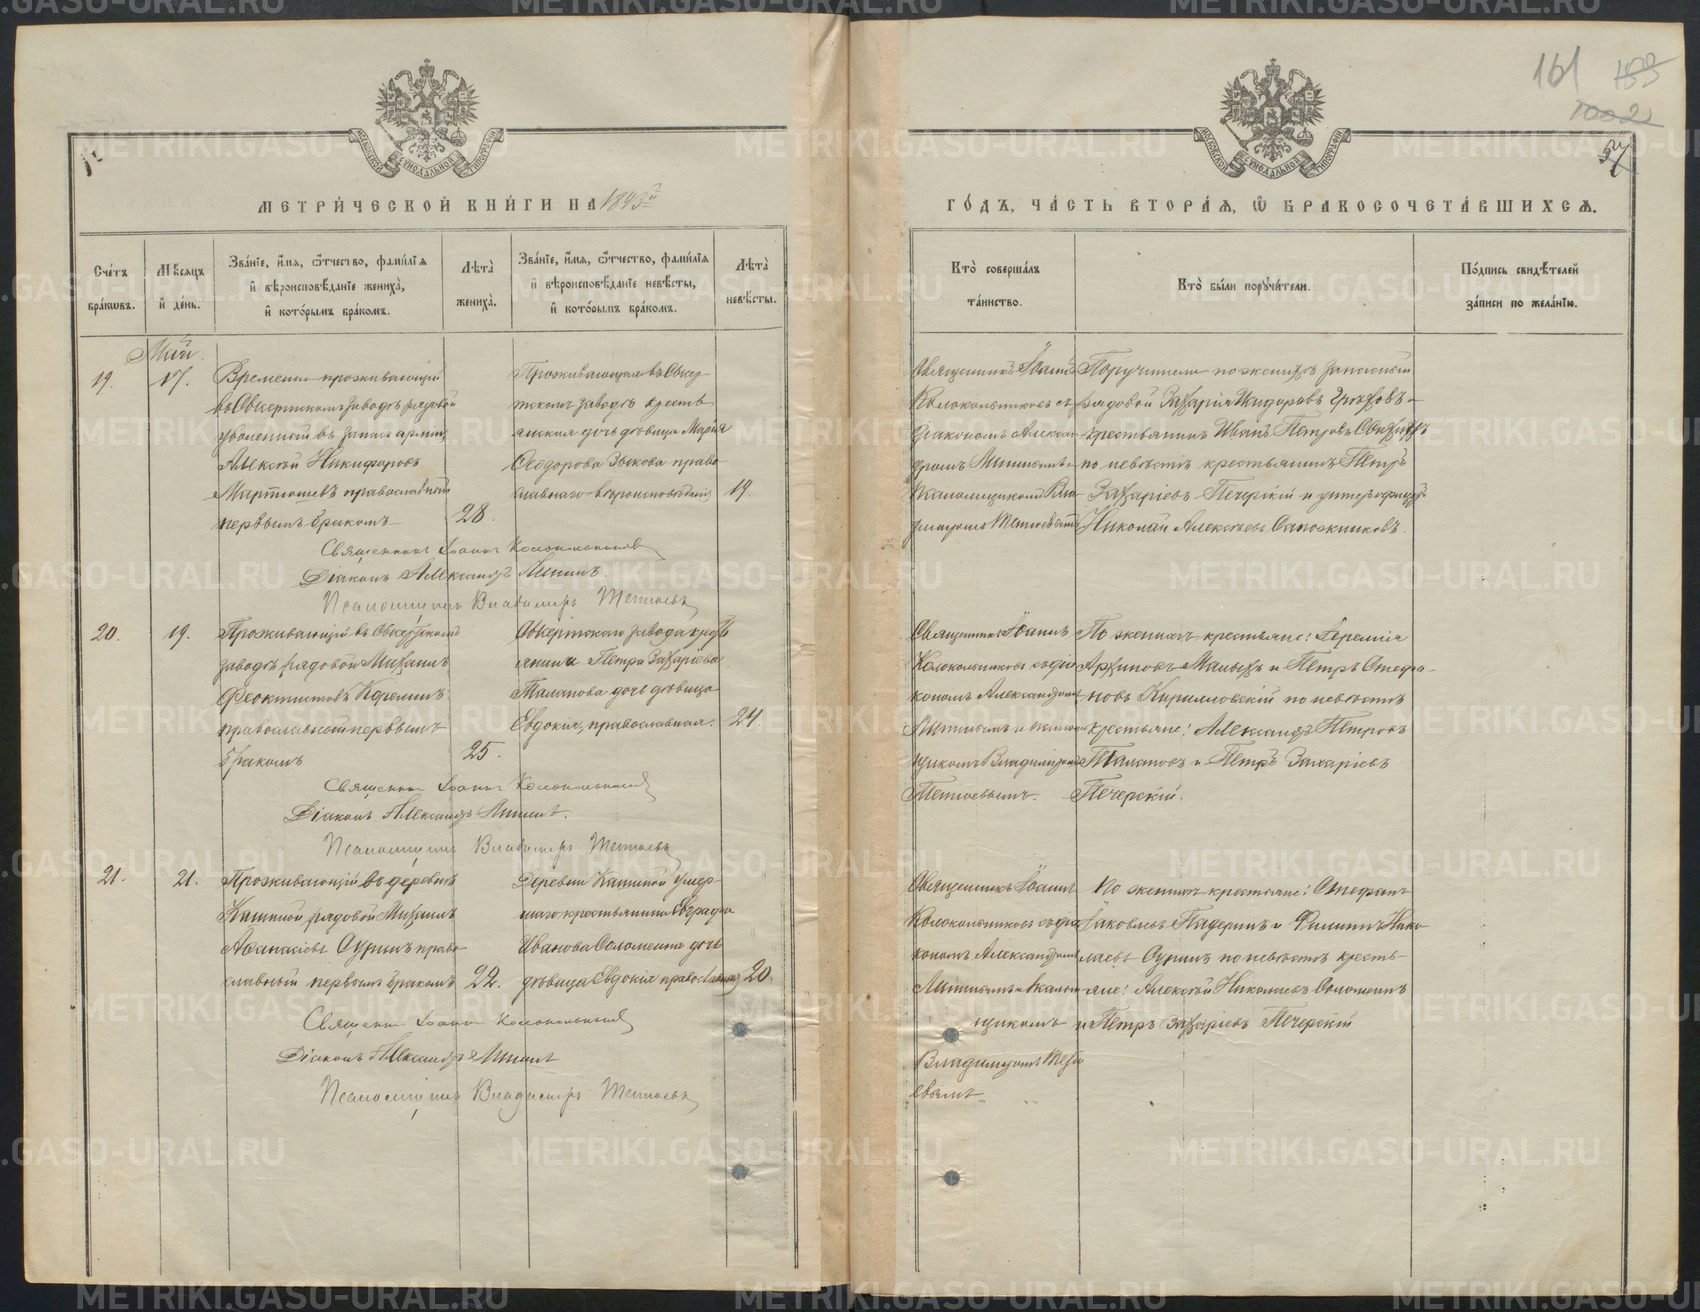 161 183
1002
57
МОСКОВСКОЙ СѴНОДАЛЬНОЙ ТИПОГРАФІИ
МОСКОВСКОЙ СѴНОДАЛЬНОЙ ТИПОГРАФІИ
МЕТРИ́ЧЕСКОЙ КНИ́ГИ НА 1893й
ГО́ДЪ, ЧА́СТЬ ВТОРА́Я, Ѡ БРАКОСОЧЕТА́ВШИХСЯ.
Сче́тъ бра́кѡвъ.
Мѣ́сяцъ и҆ день.
Зва́нїе, и҆́мя, ѻ҆́тчество, фамѝлїя и҆ вѣроисповѣ́данїе жениха̀, и҆ кото́рымъ бра́комъ.
Лѣта̀ жениха̀.
Зва́нїе, и҆́мя, ѻ҆́тчество, фамѝлїя и҆ вѣроисповѣ́данїе невѣ́сты, и҆ кото́рымъ бра́комъ.
Лѣта̀ невѣ́сты.
Кто̀ соверша́лъ та́инство.
Кто̀ бы́ли порꙋчи́тели.
По́дпись свидѣ́телей за́писи по жела́нїю.
Май.
19.
17.
Временно проживающій
въ Сысертскомъ заводѣ рядовой
уволенный въ запасъ арміи,
Алексѣй Никифоровъ
Мартюшевъ православный
первымъ бракомъ
28.
Проживающая въ Сысер-
тскомъ заводѣ кресть
янская дочь дѣвица Марія
Ѳеодорова Зыкова право
славнаго вѣроисповѣданія
19.
Священникъ Іоаннъ
Колокольниковъ съ
діакономъ Алексан-
дромъ Мининымъ и
псаломщикомъ Вла-
диміромъ
Поручители по женихѣ запасный
рядовой Захарія Исидоровъ
крестьянинъ Иванъ Петровъ
по невѣстѣ крестьянинъ Петръ
Захаріевъ Печерскій и
Николай Алексѣевъ Сапожниковъ.
Священникъ Іоаннъ Колокольниковъ
Діаконъ Александръ Мининъ.
Псаломщикъ Владиміръ
20.
19.
Проживающій въ Сысертскомъ
заводѣ рядовой Михаилъ
Ѳеоктистовъ
православный первымъ
бракомъ
25.
Сысертскаго завода крест
янина Петра Захаріева
Талапова дочь дѣвица
Евдокія, православная.
24.
Священникъ Іоаннъ
Колокольниковъ съ діа
кономъ Александромъ
Мининымъ и псалом
щикомъ Владиміромъ
По женихѣ крестьяне: Іеремія
Архиповъ Малыхъ и Петръ Стефа-
новъ Кирилловскій по невѣстѣ
крестьяне: Александръ Петровъ
Талаповъ и Петръ Захаріевъ
Печерскій.
Священникъ Іоаннъ Колокольниковъ
Діаконъ Александръ Мининъ.
Псаломщикъ Владиміръ
21.
21.
Проживающій въ деревнѣ
Кашиной рядовой Михаилъ
Аѳанасіевъ Суринъ право
славный первымъ бракомъ
22.
Деревни Кашиной умер
шаго крестьянина Евграфа
Иванова Соломеина дочь
дѣвица Евдокія православная
20.
Священникъ Іоаннъ
Колокольниковъ съ діа
кономъ Александромъ
Мининымъ и псалом
щикомъ
Владиміромъ
евымъ
По женихѣ крестьяне: Стефанъ
Іаковлевъ Падеринъ и Филиппъ Нико
лаевъ Суринъ по невѣстѣ кресть-
яне: Алексѣй Николаевъ Соломеинъ
и Петръ Захаріевъ Печерскій
Священникъ Іоаннъ Колокольниковъ
Діаконъ Александръ Мининъ
Псаломщикъ Владиміръ
METRIKI.GASO-URAL.RU